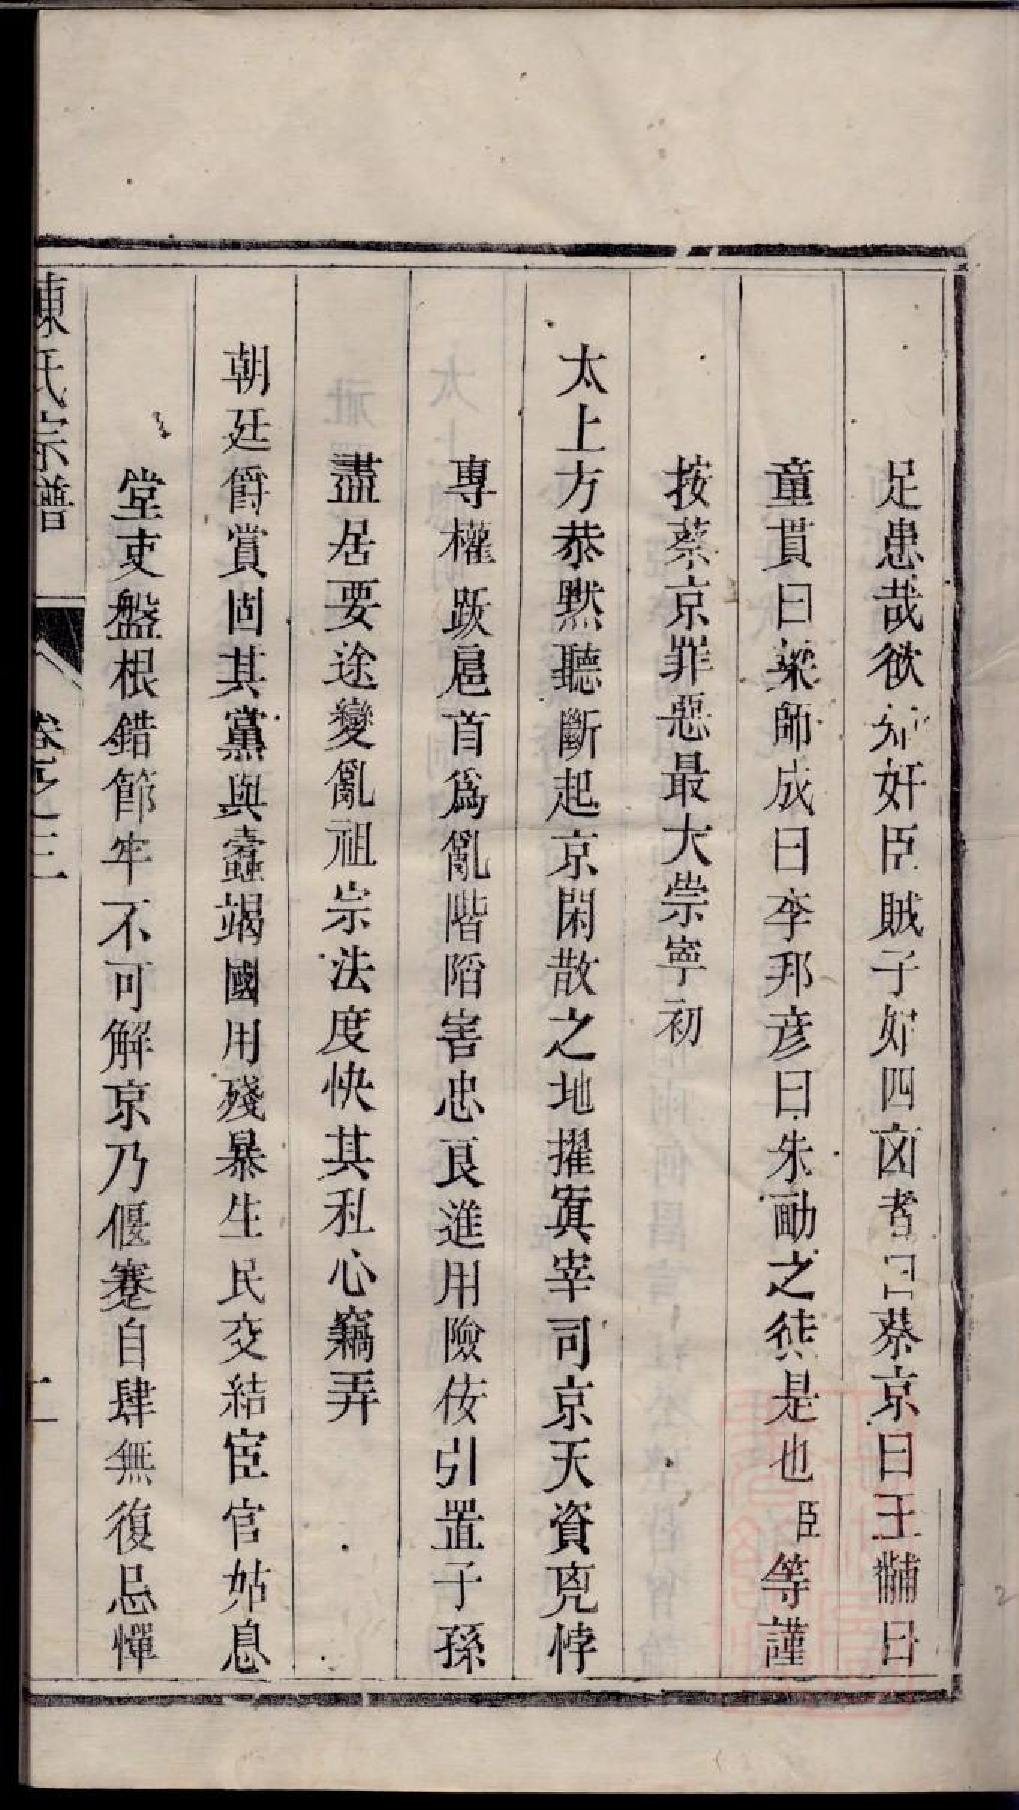 足患哉欲知奸臣賊子如四凶者曰蔡京曰王黼曰
童貫曰梁師成曰李邦彦曰朱勔之徒是也臣等謹
按蔡京罪惡最大崇寧初
太上方恭默聽斷起京閑散之地擢寘宰司京天資兇悖
專權跋扈首爲亂階陷害忠良進用險佞引置子孫
盡居要途變亂祖宗法度快其私心竊弄
朝廷爵賞固其黨與蠹竭國用殘暴生民交結宦官姑息
堂吏盤根錯節牢不可解京乃偃蹇自肆無復忌憚
陳氏宗譜 卷之三